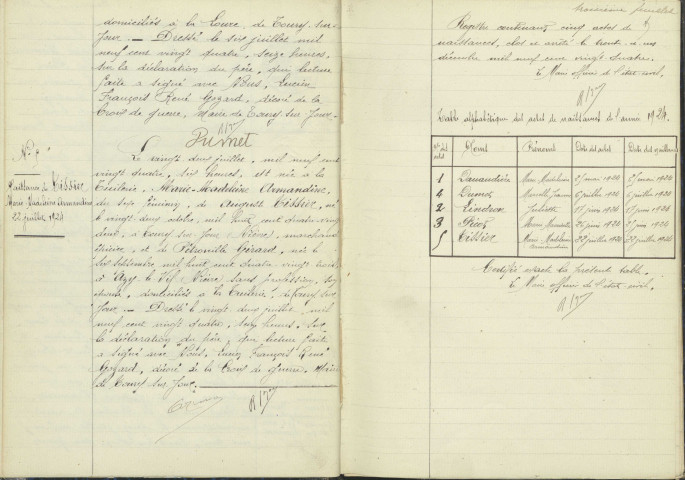 domiciliés à la Loure, de Toury-sur-
Jour. — Dressé le six juillet mil
neuf cent vingt quatre, seize heures,
sur la déclaration du père, qui lecture
faite a signé avec Nous, Lucien
François René Gozard, décoré de la
Croix de guerre, Maire de Toury sur Jour.
N° 5
Naissance de Tissier
Marie-Madeleine Armandine
22 juillet 1924
Le vingt deux juillet, mil neuf cent
vingt quatre, six heures, est née à la
Tuilerie, Marie-Madeleine Armandine,
du sexe féminin, de Auguste Tissier, né
le vingt deux octobre, mil huit cent quatre vingt
à Toury sur Jour Nièvre, marchand
et de Pétronille Gérard, née le
septembre mil huit cent quatre vingt
à Azy le Vif Nièvre sans profession, son
épouse, domiciliés à la Tuilerie, de Toury sur
Jour — Dressé le vingt deux juillet mil
neuf cent vingt quatre, heures, sur
la déclaration du père, qui lecture faite
a signé avec Nous, Lucien François René
Gozard, décoré de la Croix de guerre, Maire
de Toury sur Jour.
feuillet
Registre contenant cinq actes de
naissances, clos et arrêté le trente et un
décembre mil neuf cent vingt quatre.
Le Maire officier de l'état civil.
Table alphabétique des actes de naissances de l'année 1924.
N° des actes Noms Prénoms Date des actes Date des
1 Marie Madeleine 27 mai 1924 27 mai 1924
4 Marcelle Jeanne 6 juillet 1924 6 juillet 1924
2 Juliette 17 juin 1924 17 juin 1924
3 Picot juin 1924 juin 1924
5 Tissier Marie Madeleine Armandine 22 juillet 1924 22 juillet 1924
Certifié exact la présente table.
Le Maire officier de l'état civil.